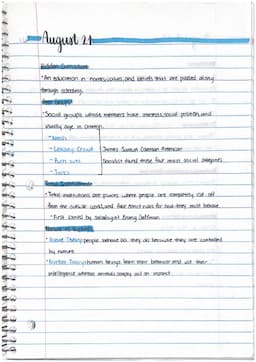 August 21
Hidden Curriculum
*An education in norms, values, and beliefs that are passed along
through schooling.
Peer Groups
*Social groups whose members have interests, social position, and
usually age in common.
*Nerds
*Leading Crowd
James Samuel Coleman American
*Burn outs
Socialist found these four main social categories
*Jocks
Total Institutions
*Total institutions are places where people are completely cut off
from the outside world, and face strict rules for how they must behave
*First coined by sociologist Erving Goffman
Nature vs Nurture
*Nature Theory: people behave as they do because they are controlled
by nature
*Nurture Theory: human beings learn their behavior and use their
intelligence whereas animals simply act on instinct